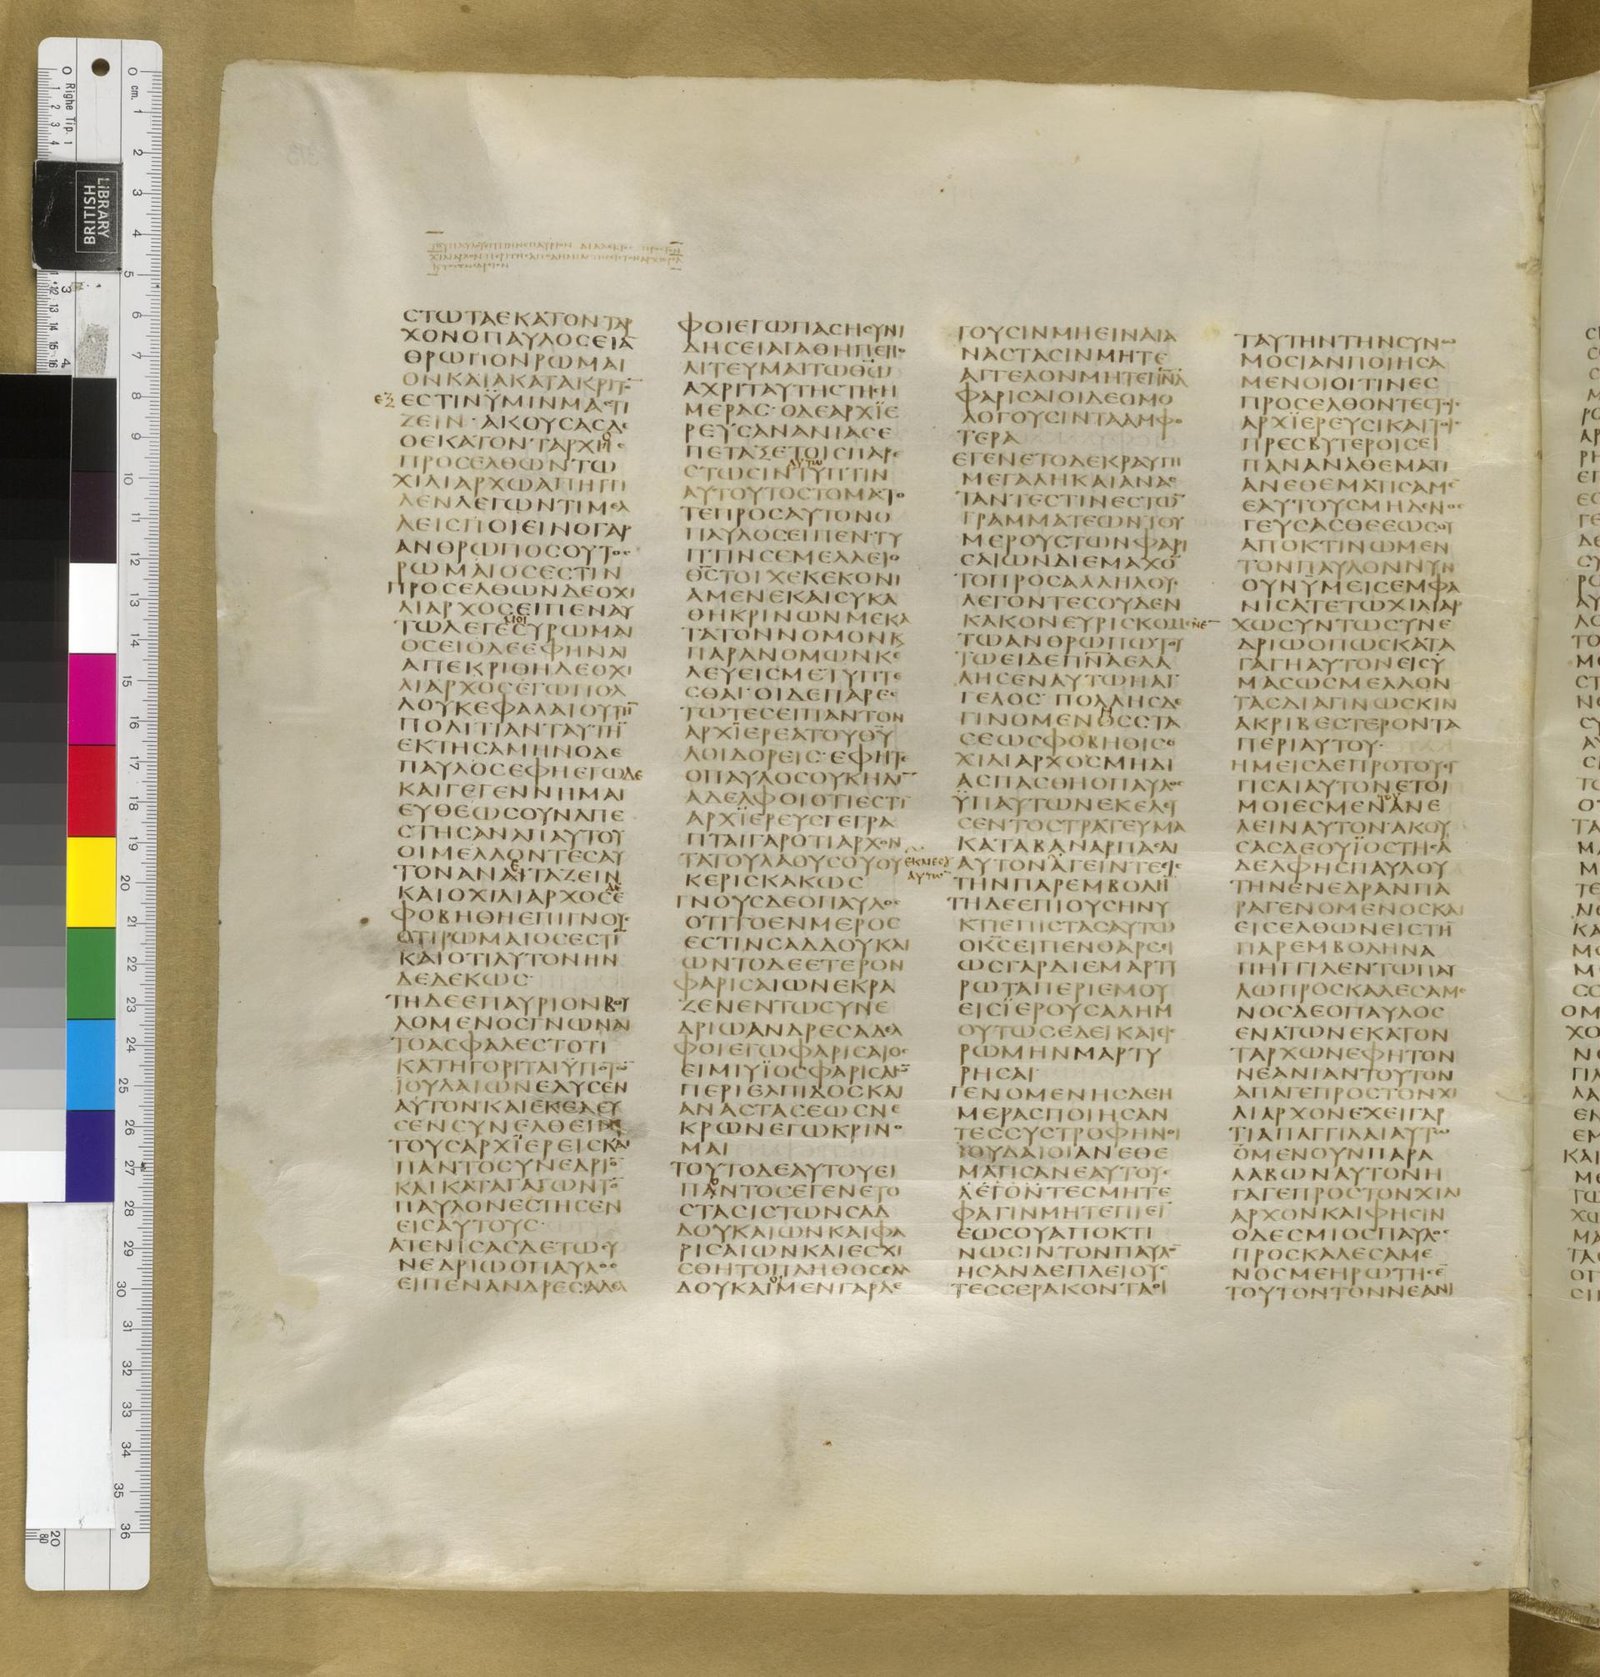 ϹΤΩΤΑΕΚΑΤΟΝΤΑΡ
ΧΟΝΟΠΑΥΛΟϹΕΙΑ
ΘΡΩΠΟΝΡΩΜΑΙ
ΟΝΚΑΙΑΚΑΤΑΚΡΙΤ
ΕϹΤΙΝΫΜΙΝΜΑϹΤΙ
ΖΕΙΝ·ΑΚΟΥϹΑϹΔΕ
ΟΕΚΑΤΟΝΤΑΡΧΗϹ
ΠΡΟϹΕΛΘΩΝΤΩ
ΧΙΛΙΑΡΧΩΑΠΗΓΓΙ
ΛΕΝΛΕΓΩΝΤΙΜΕΛ
ΛΕΙϹΠΟΙΕΙΝΟΓΑΡ
ΑΝΘΡΩΠΟϹΟΥΤΟϹ
ΡΩΜΑΙΟϹΕϹΤΙΝ
ΠΡΟϹΕΛΘΩΝΔΕΟΧΙ
ΛΙΑΡΧΟϹΕΙΠΕΝΑΥ
ΤΩΛΕΓΕϹΥΡΩΜΑΙ
ΟϹΕΙΟΔΕΕΦΗΝΑΙ
ΑΠΕΚΡΙΘΗΔΕΟΧΙ
ΛΙΑΡΧΟϹΕΓΩΠΟΛ
ΛΟΥΚΕΦΑΛΑΙΟΥΤΗ
ΠΟΛΙΤΙΑΝΤΑΥΤΗ
ΕΚΤΗϹΑΜΗΝΟΔΕ
ΠΑΥΛΟϹΕΦΗΕΓΩΔΕ
ΚΑΙΓΕΓΕΝΝΗΜΑΙ
ΕΥΘΕΩϹΟΥΝΑΠΕ
ϹΤΗϹΑΝΑΠΑΥΤΟΥ
ΟΙΜΕΛΛΟΝΤΕϹΑΥ
ΤΟΝΑΝΑΙΤΑΖΕΙΝ
ΚΑΙΟΧΙΛΙΑΡΧΟϹΕ
ΦΟΒΗΘΗΕΠΙΓΝΟΥϹ
ΟΤΙΡΩΜΑΙΟϹΕϹΤΙ
ΚΑΙΟΤΙΑΥΤΟΝΗΝ
ΔΕΔΕΚΩϹ·
ΤΗΔΕΕΠΑΥΡΙΟΝΒΟΥ
ΛΟΜΕΝΟϹΓΝΩΝΑΙ
ΤΟΑϹΦΑΛΕϹΤΟΤΙ
ΚΑΤΗΓΟΡΙΤΑΙΫΠΟΤΩ
ΪΟΥΔΑΙΩΝΕΛΥϹΕΝ
ΑΥΤΟΝΚΑΙΕΚΕΛΕΥ
ϹΕΝϹΥΝΕΛΘΕΙΝ
ΤΟΥϹΑΡΧΪΕΡΕΙϹΚΑΙ
ΠΑΝΤΟϹΥΝΕΔΡΙΟ
ΚΑΙΚΑΤΑΓΑΓΩΝΤΟ
ΠΑΥΛΟΝΕϹΤΗϹΕΝ
ΕΙϹΑΥΤΟΥϹ·
ΑΤΕΝΙϹΑϹΔΕΤΩϹΥ
ΝΕΔΡΙΩΟΠΑΥΛΟϹ
ΕΙΠΕΝΑΝΔΡΕϹΑΔΕΛ
ΦΟΙΕΓΩΠΑϹΗϹΥΝΙ
ΔΗϹΕΙΑΓΑΘΗΠΕΠΟ
ΛΙΤΕΥΜΑΙΤΩΘΩ
ΑΧΡΙΤΑΥΤΗϹΤΗϹΗ
ΜΕΡΑϹ·ΟΔΕΑΡΧΪΕ
ΡΕΥϹΑΝΑΝΙΑϹΕ
ΠΕΤΑΞΕΤΟΙϹΠΑΡΕ
ϹΤΩϹΙΝΤΥΠΤΙΝ
ΑΥΤΟΥΤΟϹΤΟΜΑΤΟ
ΤΕΠΡΟϹΑΥΤΟΝΟ
ΠΑΥΛΟϹΕΙΠΕΝ·ΤΥ
ΠΤΙΝϹΕΜΕΛΛΕΙΟ
ΘϹΤΟΙΧΕΚΕΚΟΝΙ
ΑΜΕΝΕΚΑΙϹΥΚΑ
ΘΗΚΡΙΝΩΝΜΕΚΑ
ΤΑΤΟΝΝΟΜΟΝΚ
ΠΑΡΑΝΟΜΩΝΚΕ
ΛΕΥΕΙϹΜΕΤΥΠΤΕ
ϹΘΑΙ·ΟΙΔΕΠΑΡΕϹ
ΤΩΤΕϹΕΙΠΑΝΤΟΝ
ΑΡΧΪΕΡΕΑΤΟΥΘΥ
ΛΟΙΔΟΡΕΙϹ·ΕΦΗΤΕ
ΟΠΑΥΛΟϹΟΥΚΗΔΙ
ΑΔΕΛΦΟΙΟΤΙΕϹΤΙ
ΑΡΧΪΕΡΕΥϹΓΕΓΡΑ
ΠΤΑΙΓΑΡΟΤΙΑΡΧΟΝ
ΤΑΤΟΥΛΑΟΥϹΟΥΟΥ
ΚΕΡΙϹΚΑΚΩϹ
ΓΝΟΥϹΔΕΟΠΑΥΛΟϹ
ΟΤΙΤΟΕΝΜΕΡΟϹ
ΕϹΤΙΝϹΑΔΔΟΥΚΑΙ
ΩΝΤΟΔΕΕΤΕΡΟΝ
ΦΑΡΙϹΑΙΩΝΕΚΡΑ
ΖΕΝΕΝΤΩϹΥΝΕ
ΔΡΙΩΑΝΔΡΕϹΑΔΕΛ
ΦΟΙΕΓΩΦΑΡΙϹΑΙΟϹ
ΕΙΜΙΥΪΟϹΦΑΡΙϹΑΙΩ
ΠΕΡΙΕΛΠΙΔΟϹΚΑΙ
ΑΝΑϹΤΑϹΕΩϹΝΕ
ΚΡΩΝΕΓΩΚΡΙΝΟ
ΜΑΙ
ΤΟΥΤΟΔΕΑΥΤΟΥΕΙ
ΠΑΝΤΟϹΕΓΕΝΕΤΟ
ϹΤΑϹΙϹΤΩΝϹΑΔ
ΔΟΥΚΑΙΩΝΚΑΙΦΑ
ΡΙϹΑΙΩΝΚΑΙΕϹΧΙ
ϹΘΗΤΟΠΛΗΘΟϹϹΑΔ
ΔΟΥΚΑΙΜΕΝΓΑΡΛΕ
ΓΟΥϹΙΝΜΗΕΙΝΑΙΑ
ΝΑϹΤΑϹΙΝΜΗΤΕ
ΑΓΓΕΛΟΝΜΗΤΕΠΝΑ
ΦΑΡΙϹΑΙΟΙΔΕΟΜΟ
ΛΟΓΟΥϹΙΝΤΑΑΜΦΟ
ΤΕΡΑ
ΕΓΕΝΕΤΟΔΕΚΡΑΥΓΗ
ΜΕΓΑΛΗΚΑΙΑΝΑϹ
ΤΑΝΤΕϹΤΙΝΕϹΤΩ
ΓΡΑΜΜΑΤΕΩΝΤΟΥ
ΜΕΡΟΥϹΤΩΝΦΑΡΙ
ϹΑΙΩΝΔΙΕΜΑΧΟ
ΤΟΠΡΟϹΑΛΛΗΛΟΥϹ
ΛΕΓΟΝΤΕϹΟΥΔΕΝ
ΚΑΚΟΝΕΥΡΙϹΚΟΜΕΝΕ
ΤΩΑΝΘΡΩΠΩΤΟΥ
ΤΩΕΙΔΕΠΝΑΕΛΑ
ΛΗϹΕΝΑΥΤΩΗΑΓ
ΓΕΛΟϹ·ΠΟΛΛΗϹΔΕ
ΓΙΝΟΜΕΝΟϹϹΤΑ
ϹΕΩϹΦΟΒΗΘΙϹΟ
ΧΙΛΙΑΡΧΟϹΜΗΔΙ
ΑϹΠΑϹΘΗΟΠΑΥΛΟϹ
ΫΠΑΥΤΩΝΕΚΕΛΕΥ
ϹΕΝΤΟϹΤΡΑΤΕΥΜΑ
ΚΑΤΑΒΑΝΑΡΠΑϹΑΙ
ΑΥΤΟΝΑΓΕΙΝΤΕΕΙϹ
ΤΗΝΠΑΡΕΜΒΟΛΗ
ΤΗΔΕΕΠΙΟΥϹΗΝΥ
ΚΤΙΕΠΙϹΤΑϹΑΥΤΩ
ΟΚϹΕΙΠΕΝΘΑΡϹΕΙ
ΩϹΓΑΡΔΙΕΜΑΡΤΥ
ΡΩΤΑΠΕΡΙΕΜΟΥ
ΕΙϹΪΕΡΟΥϹΑΛΗΜ
ΟΥΤΩϹΕΔΕΙΚΑΙΕΙϹ
ΡΩΜΗΝΜΑΡΤΥ
ΡΗϹΑΙ
ΓΕΝΟΜΕΝΗϹΔΕΗ
ΜΕΡΑϹΠΟΙΗϹΑΝ
ΤΕϹϹΥϹΤΡΟΦΗΝΟΙ
ΙΟΥΔΑΙΟΙΑΝΕΘΕ
ΜΑΤΙϹΑΝΕΑΥΤΟΥϹ
ΛΕΓΟΝΤΕϹΜΗΤΕ
ΦΑΓΙΝΜΗΤΕΠΙΕΙ
ΕΩϹΟΥΑΠΟΚΤΙ
ΝΩϹΙΝΤΟΝΠΑΥΛΟ
ΗϹΑΝΔΕΠΛΕΙΟΥϹ
ΤΕϹϹΕΡΑΚΟΝΤΑΟΙ
ΤΑΥΤΗΝΤΗΝϹΥΝΩ
ΜΟϹΙΑΝΠΟΙΗϹΑ
ΜΕΝΟΙΟΙΤΙΝΕϹ
ΠΡΟϹΕΛΘΟΝΤΕϹΤΟΙϹ
ΑΡΧΪΕΡΕΥϹΙΚΑΙΤΟΙϹ
ΠΡΕϹΒΥΤΕΡΟΙϹΕΙ
ΠΑΝΑΝΑΘΕΜΑΤΙ
ΑΝΕΘΕΜΑΤΙϹΑΜΕ
ΕΑΥΤΟΥϹΜΗΔΕΝΟϹ
ΓΕΥϹΑϹΘΕΕΩϹΟΥ
ΑΠΟΚΤΙΝΩΜΕΝ
ΤΟΝΠΑΥΛΟΝΝΥΝ
ΟΥΝΥΜΕΙϹΕΜΦΑ
ΝΙϹΑΤΕΤΩΧΙΛΙΑΡ
ΧΩϹΥΝΤΩϹΥΝΕ
ΔΡΙΩΟΠΩϹΚΑΤΑ
ΓΑΓΗΑΥΤΟΝΕΙϹΥ
ΜΑϹΩϹΜΕΛΛΟΝ
ΤΑϹΔΙΑΓΙΝΩϹΚΙΝ
ΑΚΡΙΒΕϹΤΕΡΟΝΤΑ
ΠΕΡΙΑΥΤΟΥ·
ΗΜΕΙϹΔΕΠΡΟΤΟΥΕΓ
ΓΙϹΑΙΑΥΤΟΝΕΤΟΙ
ΜΟΙΕϹΜΕΝΑΝΕ
ΛΕΙΝΑΥΤΟΝ·ΑΚΟΥ
ϹΑϹΔΕΟΥΪΟϹΤΗϹΑ
ΔΕΛΦΗϹΠΑΥΛΟΥ
ΤΗΝΕΝΕΔΡΑΝΠΑ
ΡΑΓΕΝΟΜΕΝΟϹΚΑΙ
ΕΙϹΕΛΘΩΝΕΙϹΤΗ
ΠΑΡΕΜΒΟΛΗΝΑ
ΠΗΓΓΙΛΕΝΤΩΠΑΥ
ΛΩΠΡΟϹΚΑΛΕϹΑΜΕ
ΝΟϹΔΕΟΠΑΥΛΟϹ
ΕΝΑΤΩΝΕΚΑΤΟΝ
ΤΑΡΧΩΝΕΦΗΤΟΝ
ΝΕΑΝΙΑΝΤΟΥΤΟΝ
ΑΠΑΓΕΠΡΟϹΤΟΝΧΙ
ΛΙΑΡΧΟΝΕΧΕΙΓΑΡ
ΤΙΑΠΑΓΓΙΛΑΙΑΥΤΩ
ΟΜΕΝΟΥΝΠΑΡΑ
ΛΑΒΩΝΑΥΤΟΝΗ
ΓΑΓΕΠΡΟϹΤΟΝΧΙΛΙ
ΑΡΧΟΝΚΑΙΦΗϹΙΝ
ΟΔΕϹΜΙΟϹΠΑΥΛΟϹ
ΠΡΟϹΚΑΛΕϹΑΜΕ
ΝΟϹΜΕΗΡΩΤΗϹΕ
ΤΟΥΤΟΝΤΟΝΝΕΑΝΙ
BRITISH
LIBRARY
Righe Tip.
cm.